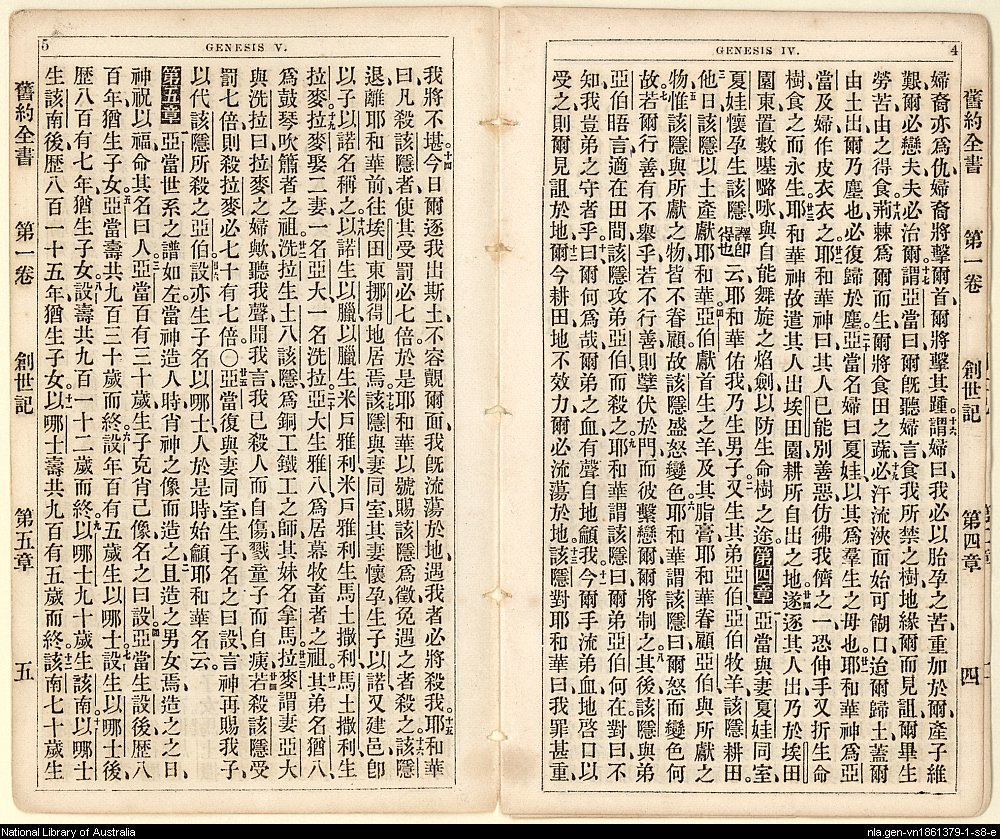 GENESIS IV. 4
舊約全書 第一卷 創世記 第四章 四
婦裔亦爲仇婦裔將擊爾首爾將擊其踵謂婦曰我必以胎孕之苦重加於爾產子維
艱爾必戀夫夫必治爾謂亞當曰爾旣聽婦言食我所禁之樹地緣爾而見詛爾畢生
勞苦由之得食荊棘爲爾而生爾將食田之蔬必汗流浹面始可餬口迨爾歸土蓋爾
由土出爾乃塵也必復歸於塵亞當名婦曰夏娃以其爲羣生之母也耶和華神爲亞
當及婦作皮衣衣之耶和華神曰其人已能別善惡仿佛我儕之一恐伸手又折生命
樹食之而永生耶和華神故遣其人出埃田園耕所自出之地遂逐其人出乃於埃田
園東置數咏與自能舞旋之焰劍以防生命樹之途 第四章 亞當與妻夏娃同室
夏娃懷孕生該隱譯卽得也云耶和華佑我乃生男子又生其弟亞伯亞伯牧羊該隱耕田
他日該隱以土產獻耶和華亞伯獻首生之羊及其脂膏耶和華眷顧亞伯與所獻之
物惟該隱與所獻之物皆不眷顧故該隱盛怒變色耶和華謂該隱曰爾怒而變色何
故若爾行善有不舉乎若不行善則孽伏於門而彼繫戀爾爾將制之其後該隱與弟
亞伯晤言適在田間該隱攻弟亞伯而殺之耶和華謂該隱曰爾弟亞伯何在對曰不
知我豈弟之守者乎曰爾何爲哉爾弟之血有聲自地籲我今爾手流弟血地啓口以
受之則爾見詛於地爾今耕田地不效力爾必流蕩於地該隱對耶和華曰我罪甚重
5 GENESIS V.
我將不堪今日爾逐我出斯土不容覿爾面我旣流蕩於地遇我者必將殺我耶和華
曰凡殺該隱者使其受罰必七倍於是耶和華以號賜該隱爲徵免遇之者殺之該隱
退離耶和華前往埃田東挪得地居焉該隱與妻同室其妻懷孕生子以諾又建邑卽
以子以諾名稱之以諾生以臘以臘生米戶雅利米戶雅利生馬土撒利馬土撒利生
拉麥拉麥娶二妻一名亞大一名洗拉亞大生雅八爲居幕牧畜者之祖其弟名猶八
爲鼓琴吹簫者之祖洗拉生土八該隱爲銅工鐵工之師其妹名拿馬拉麥謂妻亞大
與洗拉曰拉麥之婦歟聽我聲聞我言我已殺人而自傷戮童子而自痍若殺該隱受
罰七倍則殺拉麥必七十有七倍〇亞當復與妻同室生子名之曰設言神再賜我子
以代該隱所殺之亞伯設亦生子名以哪士人於是時始籲耶和華名云
第五章 亞當世系之譜如左當神造人時肖神之像而造之且造之男女焉造之之日
神祝以福命其名曰人亞當百有三十歲生子克肖己像名之曰設亞當生設後歷八
百年猶生子女亞當壽共九百三十歲而終設年百有五歲生以哪士設生以哪士後
歷八百有七年猶生子女設壽共九百一十二歲而終以哪士九十歲生該南以哪士
生該南後歷八百一十五年猶生子女以哪士壽共九百有五歲而終該南七十歲生
舊約全書 第一卷 創世記 第五章 五
National Library of Australia
nla.gen-vn1861379-1-s8-e